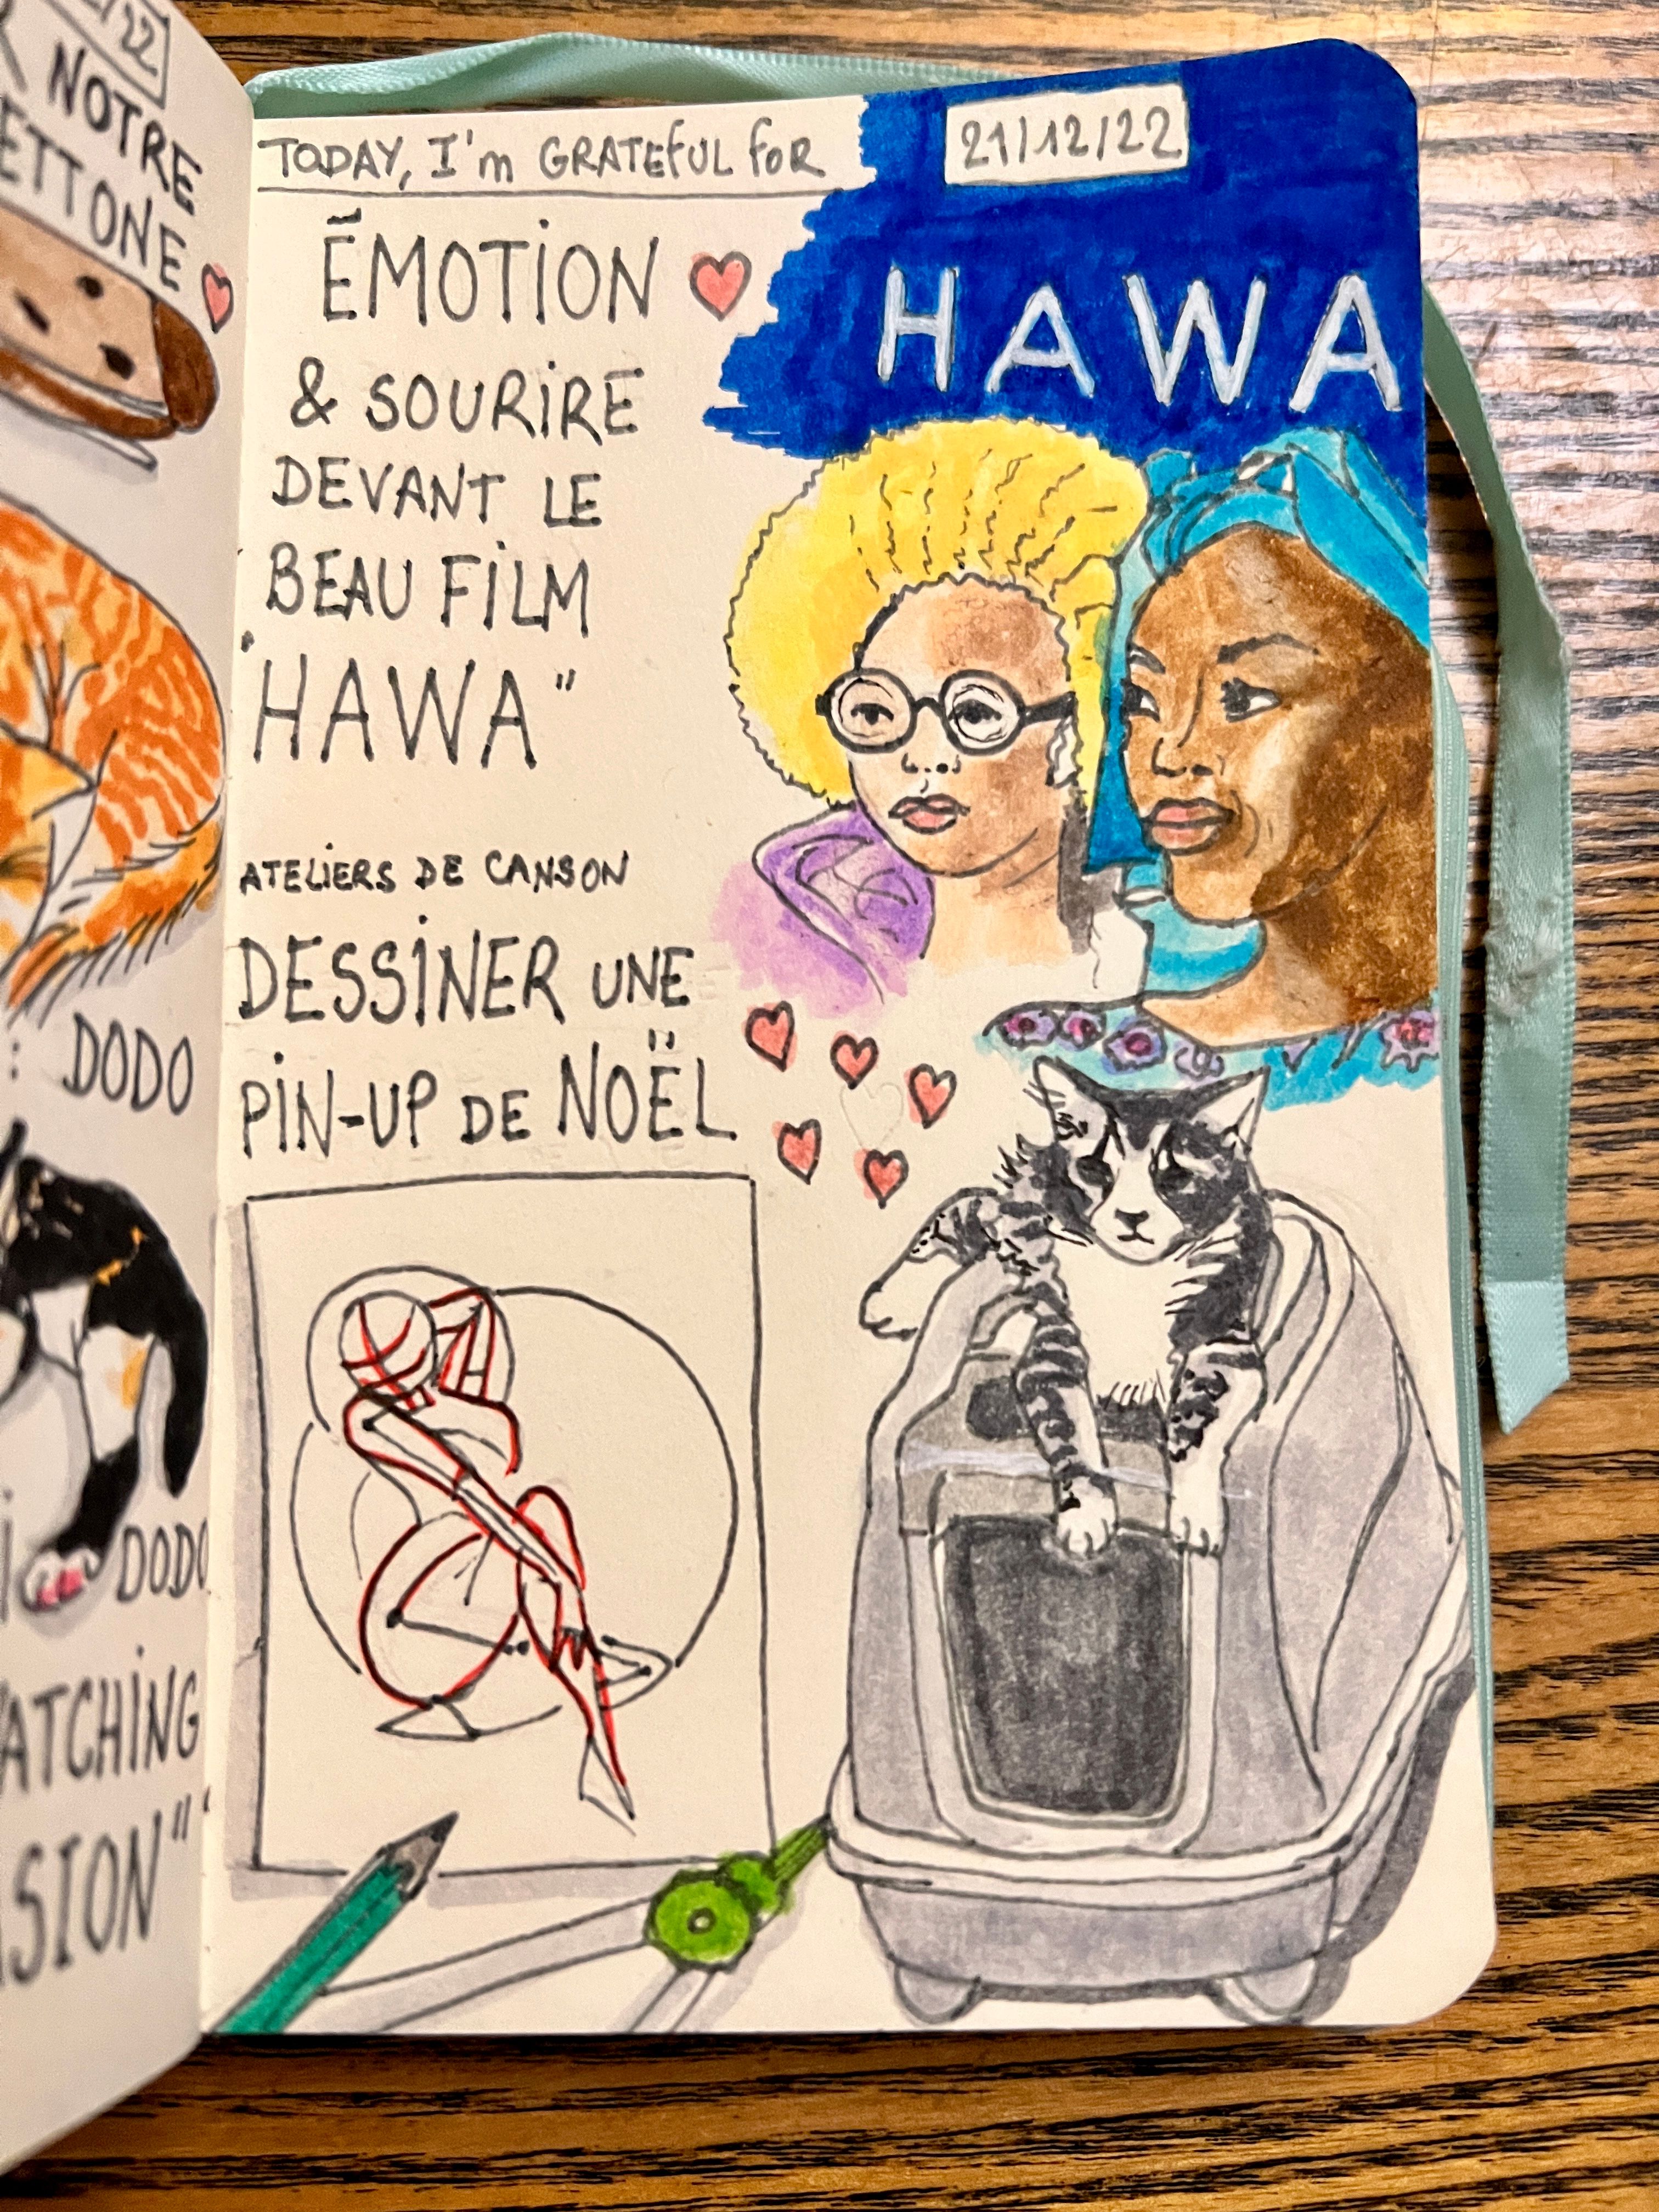 /22
NOTRE
ETTONE
DODO
DODO
ATCHING
SION"
TODAY, I'm GRATEFUL FOR
21/12/22
HAWA
ÉMOTION
& SOURIRE
DEVANT LE
BEAU FILM
"HAWA"
ATELIERS DE CANSON
DESSINER UNE
PIN-UP DE NOËL